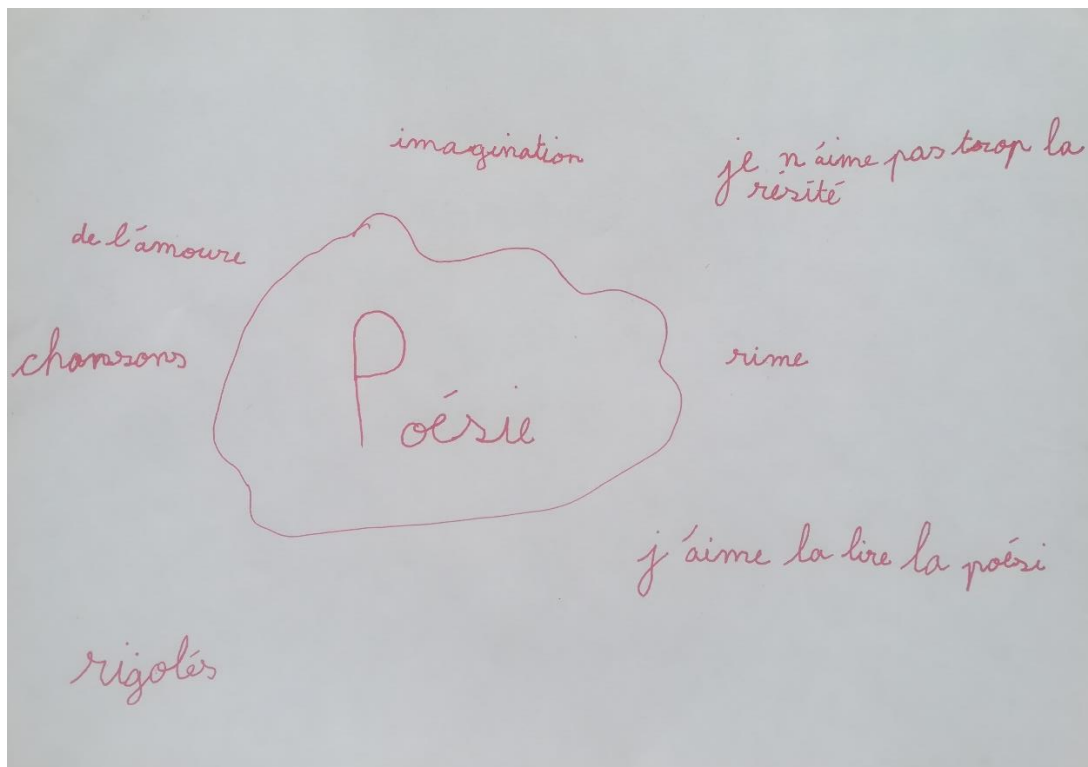 imagination
je n'aime pas trop la
résité
de l'amoure
chansons
rime
Poésie
j'aime la lire la poési
rigolés